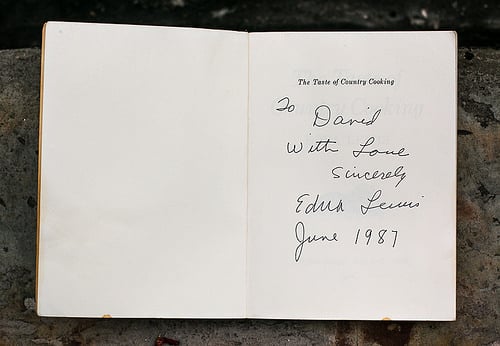 The Taste of Country Cooking
To David
With Love
Sincerely
Edna Lewis
June 1987